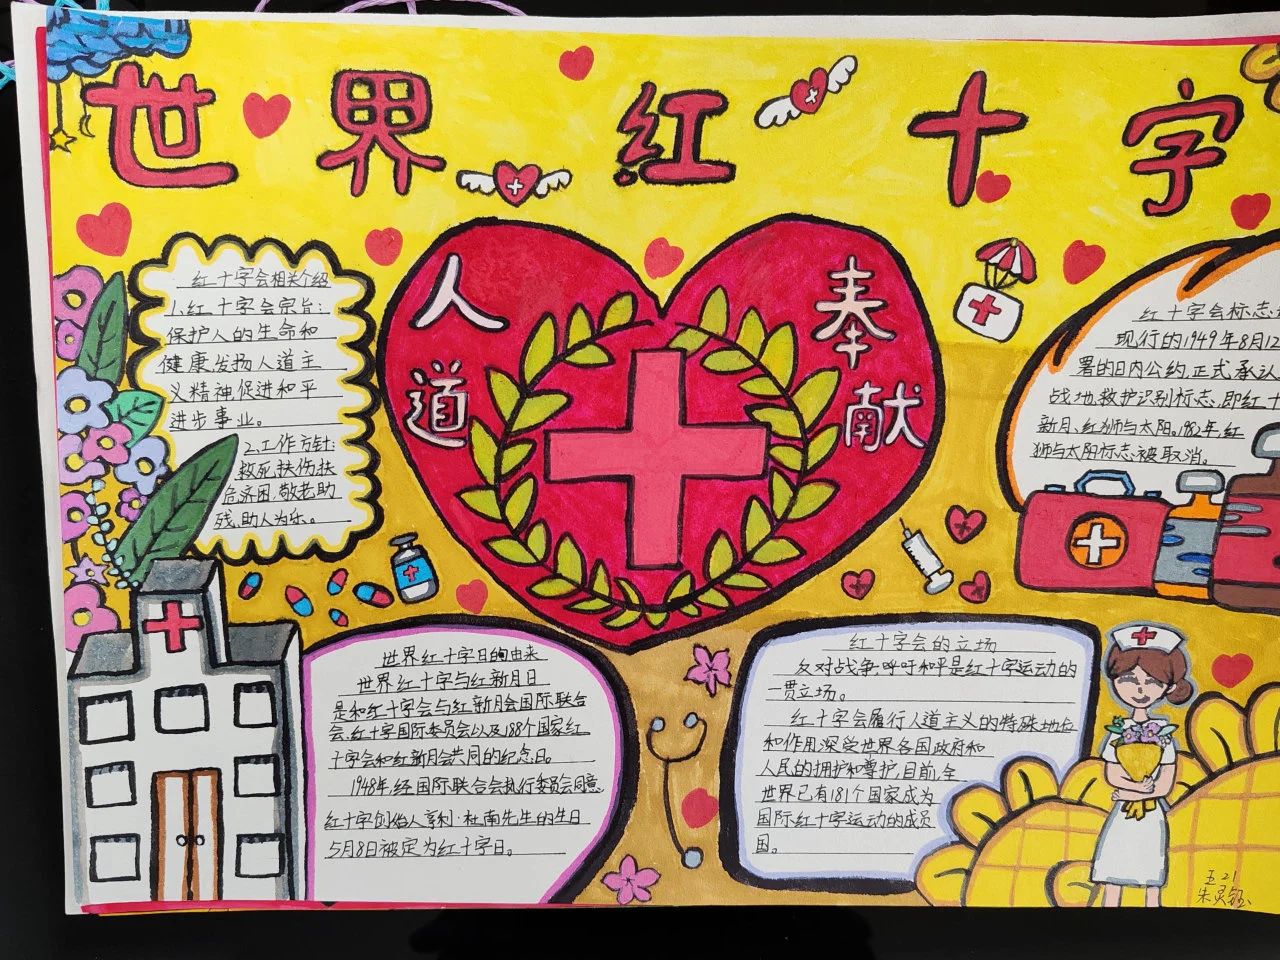 世界红十字
人道
奉献
红十字会相关介绍
1.红十字会宗旨:
保护人的生命和
健康,发扬人道主
义精神,促进和平
进步事业。
2.工作方针:
救死扶伤,扶
危济困,敬老助
残,助人为乐。
红十字会标志:
现行的1949年8月12
署的日内公约,正式承认
战地救护识别标志,即红十
新月、红狮与太阳。1982年,红
狮与太阳标志被取消。
世界红十字日的由来
世界红十字与红新月日
是和红十字会与红新月会国际联合
会,红十字国际委员会以及188个国家红
十字会和红新月会共同的纪念日。
1948年,经国际联合会执行委员会同意
红十字创始人亨利·杜南先生的生日
5月8日被定为红十字日。
红十字会的立场
反对战争,呼吁和平是红十字运动的
一贯立场。
红十字会履行人道主义的特殊地位
和作用,深受世界各国政府和
人民的拥护和尊护,目前,全
世界已有181个国家成为
国际红十字运动的成员
国。
五21
朱灵